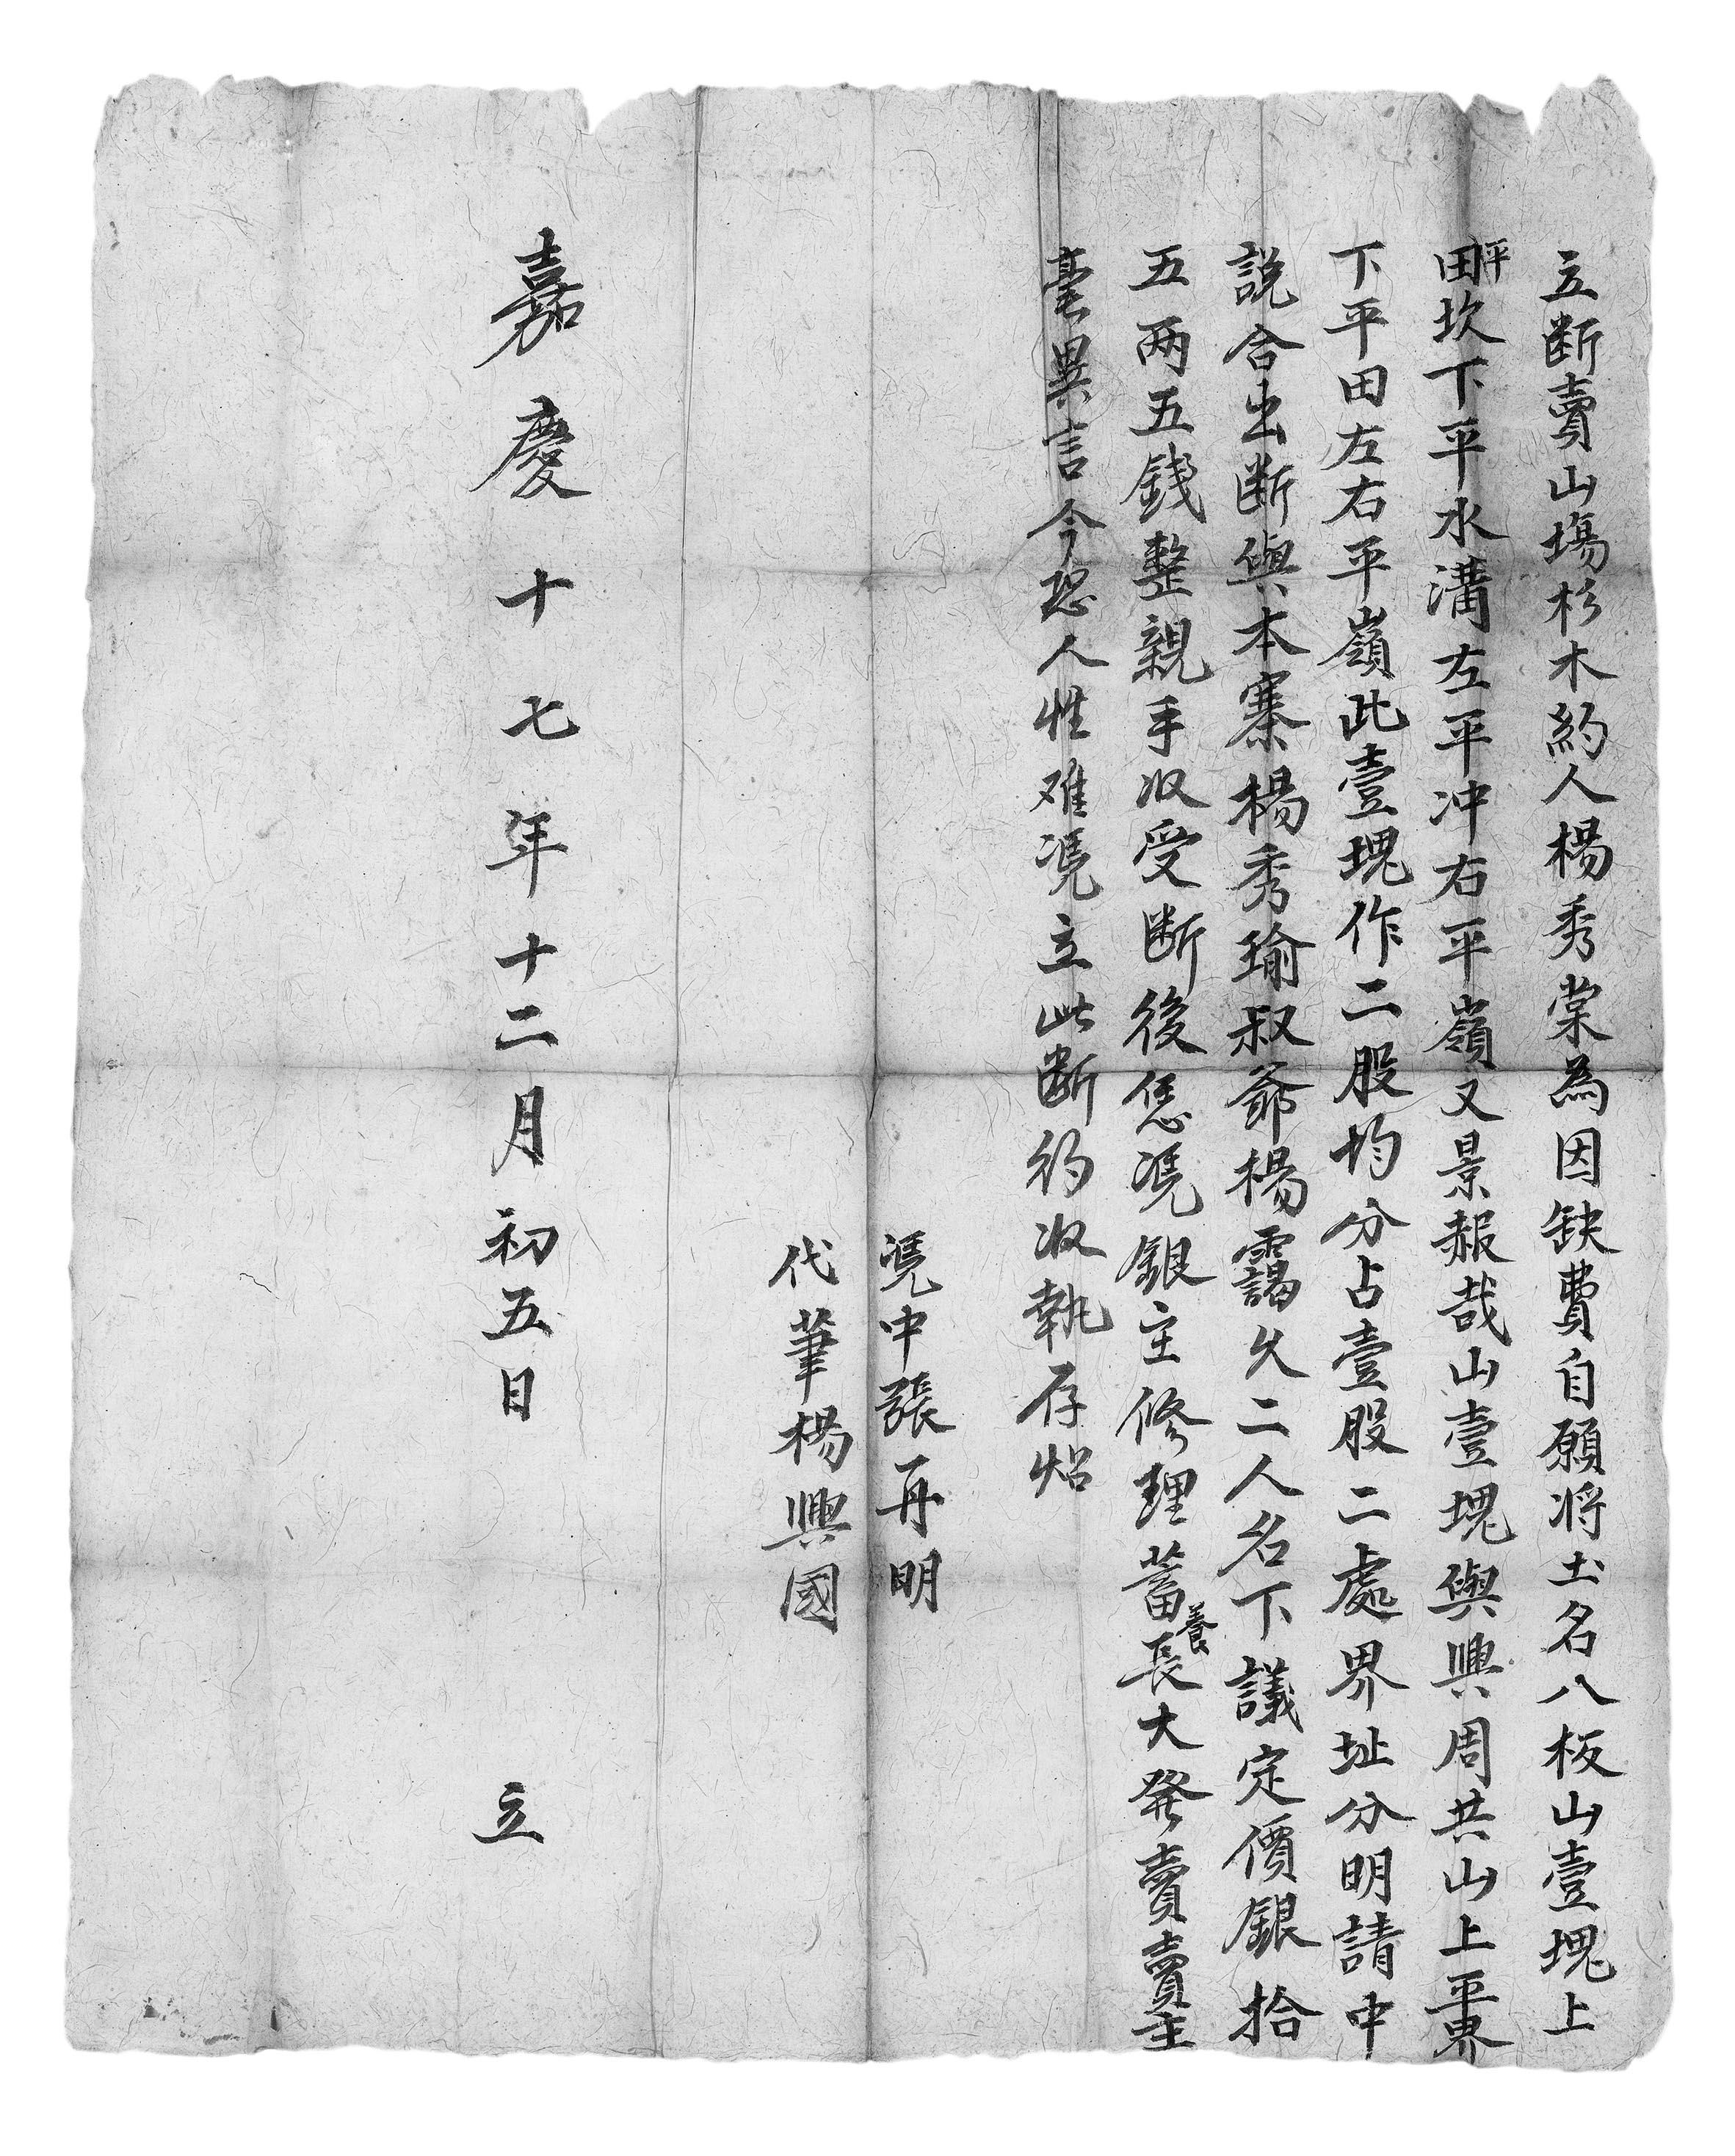 立断賣山塲杉木約人楊秀棠為因缺費自願将土名八板山壹塊上
平田坎下平水溝左平冲右平嶺又景赧哉山壹塊與興周共山上平界
下平田左右平嶺此壹塊作二股均分占壹股二處界址分明請中
説合出断與本寨楊秀瑜叔爺楊靄久二人名下議定價銀拾
五两五錢整親手収受断後恁凴銀主修理蓄養長大發賣賣主
毫異言今恐人性难凴立此断約收執存炤
凴中張再明
代筆楊興國
嘉慶十七年十二月初五日 立